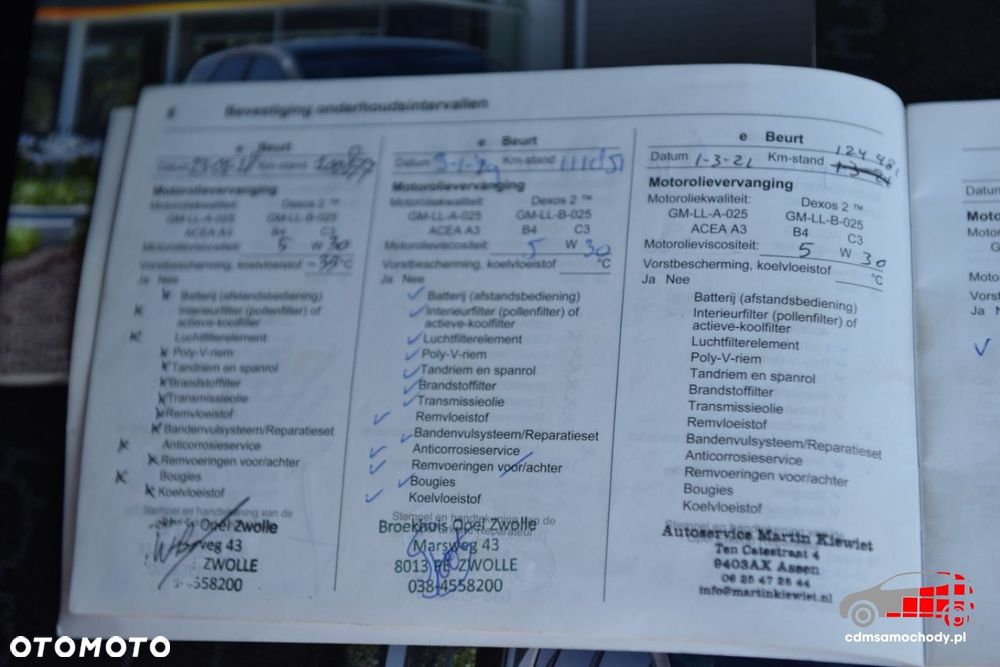 6 Bevestiging onderhoudsintervallen
e Beurt
Datum Km-stand
Motorolievervanging
Motoroliekwaliteit: Dexos 2 ™
GM-LL-A-025 GM-LL-B-025
ACEA A3 B4 C3
Motorolieviscositeit: 5 W 30
Vorstbescherming, koelvloeistof °C
Ja Nee
Batterij (afstandsbediening)
Interieurfilter (pollenfilter) of
actieve-koolfilter
Luchtfilterelement
Poly-V-riem
Tandriem en spanrol
Brandstoffilter
Transmissieolie
Remvloeistof
Bandenvulsysteem/Reparatieset
Anticorrosieservice
Remvoeringen voor/achter
Bougies
Koelvloeistof
Stempel en handtekening van de
Opel Zwolle
weg 43
ZWOLLE
558200
e Beurt
Datum Km-stand
Motorolievervanging
Motoroliekwaliteit: Dexos 2 ™
GM-LL-A-025 GM-LL-B-025
ACEA A3 B4 C3
Motorolieviscositeit: 5 W 30
Vorstbescherming, koelvloeistof °C
Ja Nee
Batterij (afstandsbediening)
Interieurfilter (pollenfilter) of
actieve-koolfilter
Luchtfilterelement
Poly-V-riem
Tandriem en spanrol
Brandstoffilter
Transmissieolie
Remvloeistof
Bandenvulsysteem/Reparatieset
Anticorrosieservice
Remvoeringen voor/achter
Bougies
Koelvloeistof
Stempel en handtekening van de
Broekhuis Opel Zwolle
Marsweg 43
8013 PE ZWOLLE
038-4558200
e Beurt
Datum 1-3-21 Km-stand 124481
Motorolievervanging
Motoroliekwaliteit: Dexos 2 ™
GM-LL-A-025 GM-LL-B-025
ACEA A3 B4 C3
Motorolieviscositeit: 5 W 30
Vorstbescherming, koelvloeistof °C
Ja Nee
Batterij (afstandsbediening)
Interieurfilter (pollenfilter) of
actieve-koolfilter
Luchtfilterelement
Poly-V-riem
Tandriem en spanrol
Brandstoffilter
Transmissieolie
Remvloeistof
Bandenvulsysteem/Reparatieset
Anticorrosieservice
Remvoeringen voor/achter
Bougies
Koelvloeistof
Stempel en handtekening van de
Autoservice Martin Kiewiet
Ten Catestraat 4
9403AX Assen
06 25 47 25 44
info@martinkiewiet.nl
Datum
Ja
OTOMOTO
cdmsamochody.pl